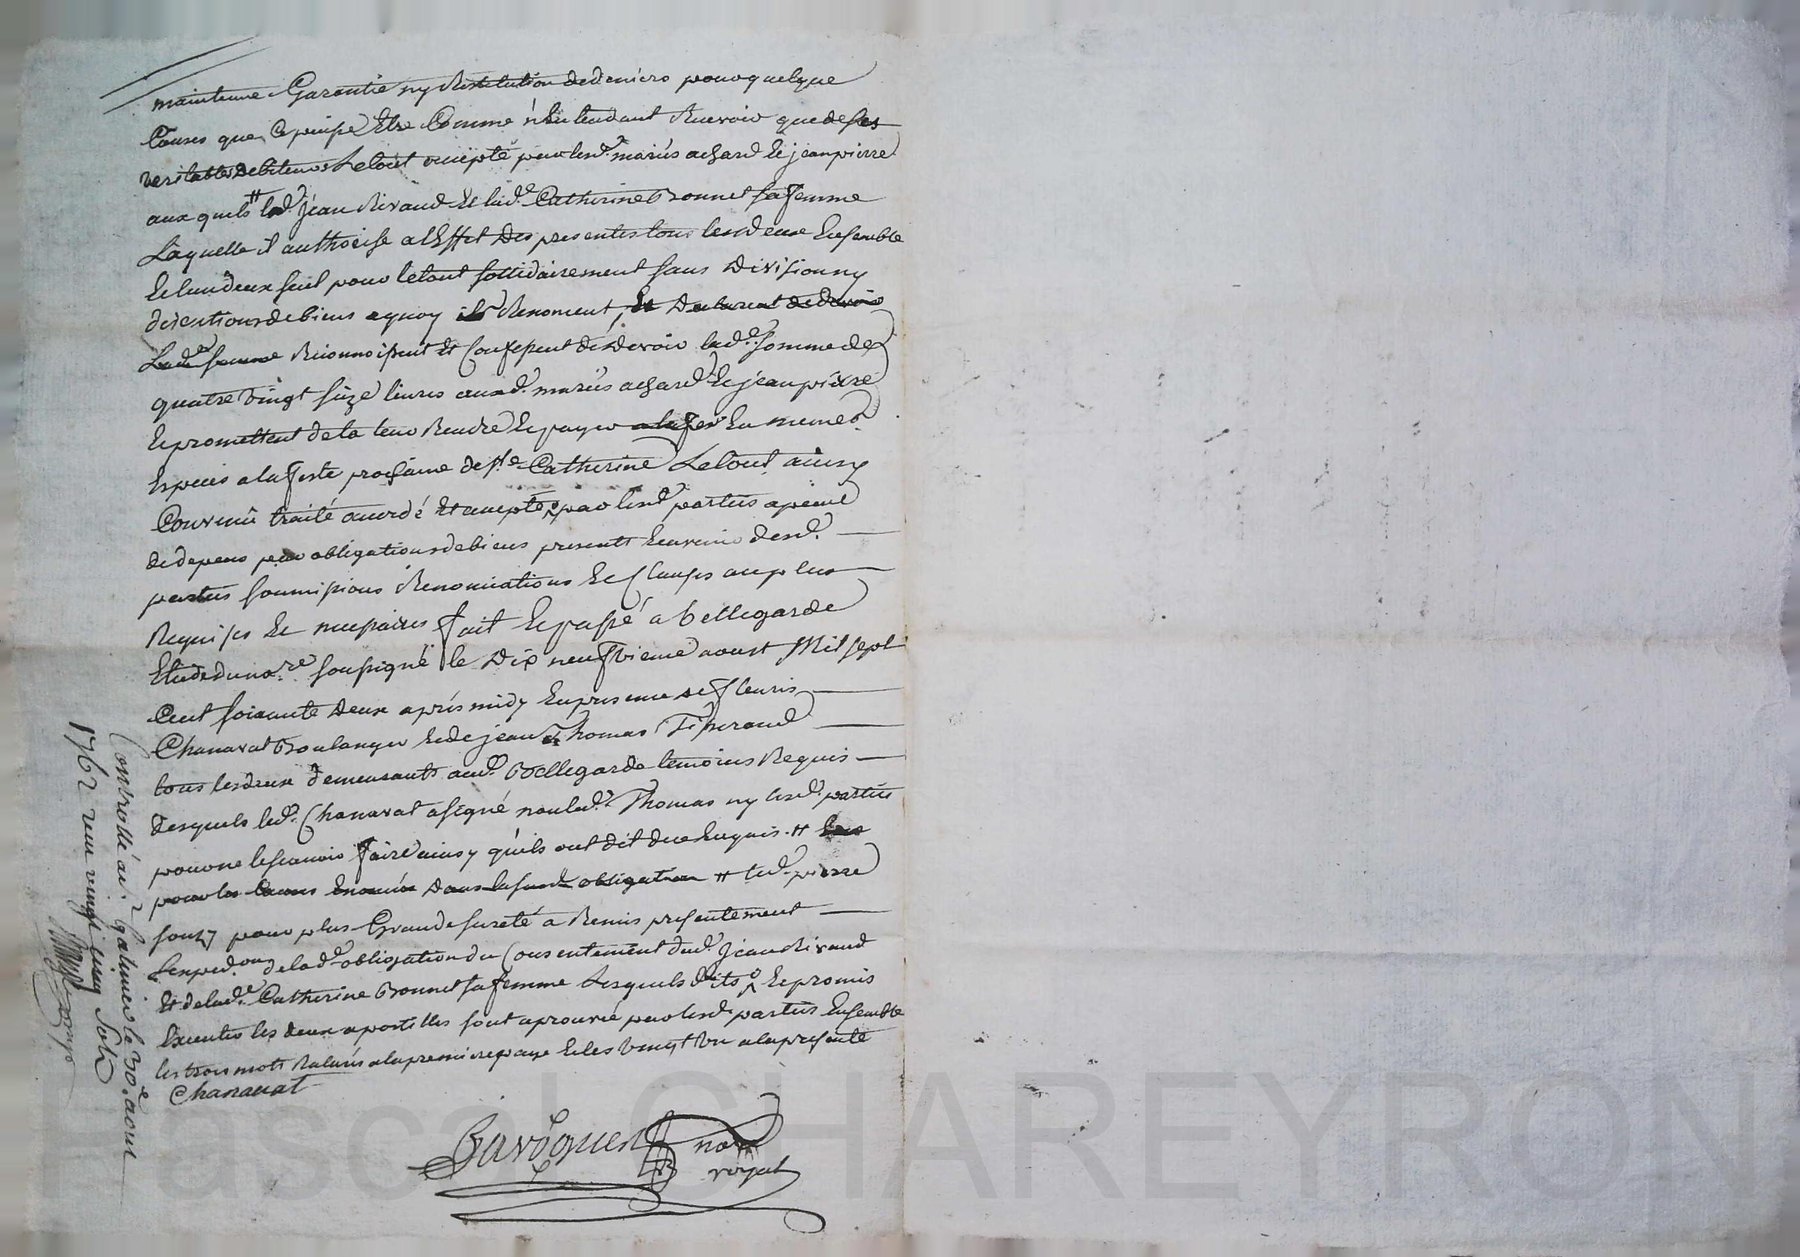 maintenue Garentie ny Restitution de deniers pour quelque
Causes que ce puisse Etre Comme n'Entendant Recevoir que de ses
veritables Debiteurs Le tout accepté par lesd. mariés achard Et jean pierre
aux quels # led. jean Rivaud Et lad.e Catherine Bonnet sa femme
Laquelle il authorise a l'Effet Des presentes tous les deux Ensemble
Et lun deux seul pour le tout sollidairement sans Division ny
discution de biens a quoy ils Renoncent, Et Declarent de devoir
Lad.e femme Reconnoissent Et Confessent de devoir lad.e somme de
quatre vingt seize livres auxd. mariés achard Et jean pierre
Et promettent de la leur Rendre Et payer a la fer En memes
Especes a la feste prochaine de s.te Catherine Le tout ainsy
Convenu traité acordé Et accepté par lesd. parties a peine
de depens par obligations de biens presents Et avenir desd.
parties soumissions Renonciations Et Clauses au plus
Requises Et necessaires fait Et passé a bellegarde
Etude du no.re soussigné le Dix neufvieme aoust Mil sept
Cent soixante Deux aprés midy En presence de fleuris
Chanavat Boulanger Et de jean Thomas
tous les deux demeurants aud. Bellegarde temoins Requis
desquels led. Chanavat a signé non led. Thomas ny lesd. parties
pour ne le scavoir faire ainsy qu'ils ont dit de ce Enquis #
pour les Causes Enoncées Dans la susd. obligation # led. pierre
pour plus Grande sureté a Remis presentement
de lad.e obligation du Consentement dud. Jean Rivaud
Et de lad.e Catherine Bonnet sa femme Lesquels dits Et promis
Executer les deux apostilles sont aprouvé par lesd. parties Ensemble
les trois mots Raturés a la premiere page Et les vingt un a la presente
Chanavat
not.re
royal
Controllé a s.t Galmier le 30.e aoust
1762 reçu vingt cinq sols
Pascal CHAREYRON